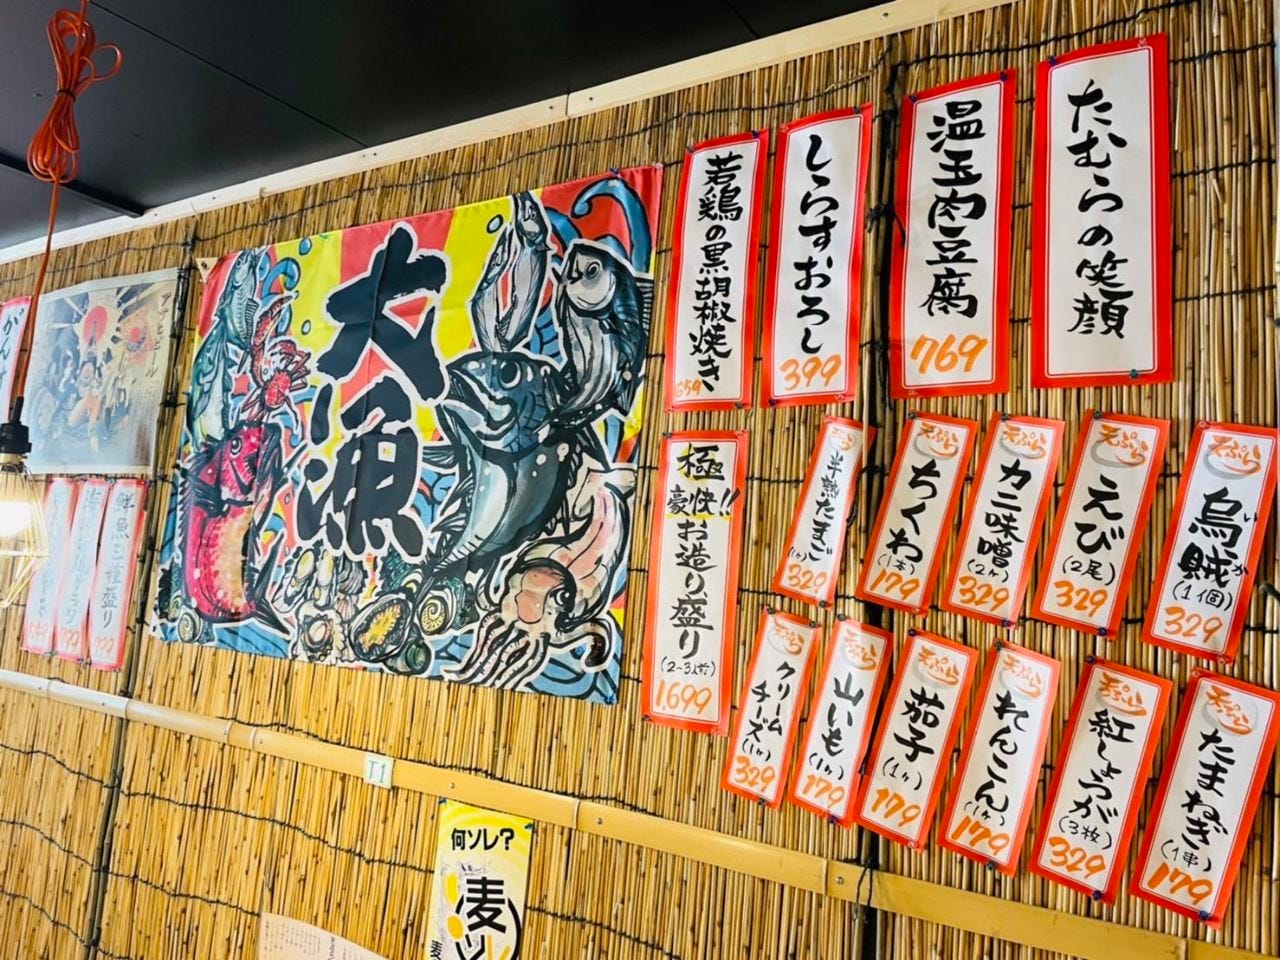 大漁
若鶏の黒胡椒焼き
659
しらすおろし
399
温玉肉豆腐
769
たむらの笑顔
極
豪快!!
お造り盛り
(2~3人前)
1.699
天ぷら
半熟たまご
(1ヶ)
329
天ぷら
ちくわ
(1本)
179
天ぷら
カニ味噌
(2ヶ)
329
天ぷら
えび
(2尾)
329
天ぷら
烏賊
いか
(1個)
329
天ぷら
クリーム
チーズ
(1ヶ)
329
天ぷら
山いも
(1ヶ)
179
天ぷら
茄子
(1ヶ)
179
天ぷら
れんこん
(1ヶ)
179
天ぷら
紅しょうが
(3枚)
329
天ぷら
たまねぎ
(1串)
179
鮮魚三種盛り
T1
何ソレ?
麦